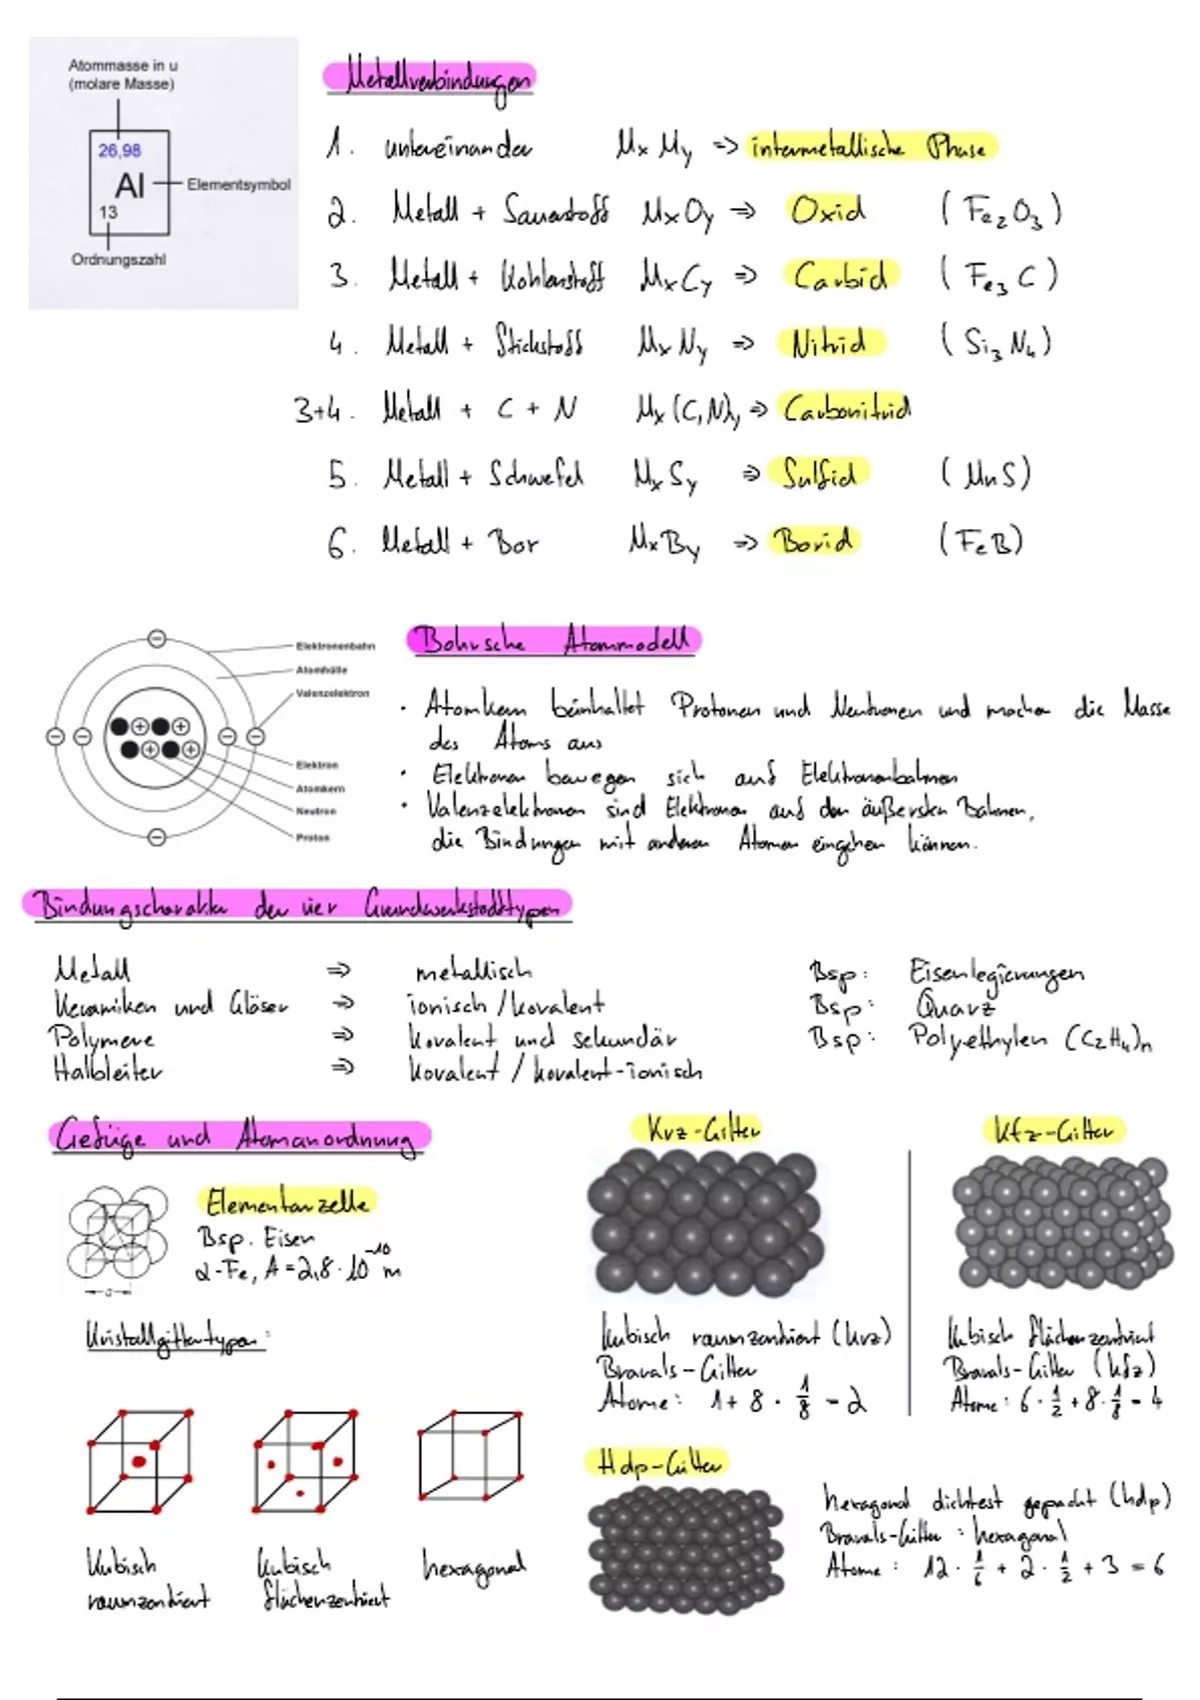 Atommasse in u
(molare Masse)
26,98
Al
Elementsymbol
13
Ordnungszahl
Metallverbindungen
1. untereinander MxMy => intermetallische Phase
2. Metall + Sauerstoff MxOy => Oxid (Fe2O3)
3. Metall + Kohlenstoff MxCy => Carbid (Fe3C)
4. Metall + Stickstoff MxNy => Nitrid (Si3N4)
3+4. Metall + C + N Mx(C,N)y => Carbonitrid
5. Metall + Schwefel MxSy => Sulfid (MnS)
6. Metall + Bor MxBy => Borid (FeB)
Elektronenbahn
Atomhülle
Valenzelektron
Elektron
Atomkern
Neutron
Proton
Bohrsche Atommodell
· Atomkern beinhaltet Protonen und Neutronen und machen die Masse
des Atoms aus
· Elektronen bewegen sich auf Elektronenbahnen
· Valenzelektronen sind Elektronen auf den äußersten Bahnen,
die Bindungen mit anderen Atomen eingehen können.
Bindungscharakter der vier Grundwerkstofftypen
Metall => metallisch Bsp: Eisenlegierungen
Keramiken und Gläser => ionisch / kovalent Bsp: Quarz
Polymere => kovalent und sekundär Bsp: Polyethylen (C2H4)n
Halbleiter => kovalent / kovalent-ionisch
Gefüge und Atomanordnung
Elementarzelle
Bsp. Eisen
α-Fe, A = 2,8 · 10^-10 m
a
Kristallgittertypen:
kubisch
raumzentriert
kubisch
flächenzentriert
hexagonal
Krz-Gitter
kubisch raumzentriert (krz)
Bravais-Gitter
Atome: 1 + 8 · 1/8 = 2
Kfz-Gitter
kubisch flächenzentriert
Bravais-Gitter (kfz)
Atome: 6 · 1/2 + 8 · 1/8 = 4
Hdp-Gitter
hexagonal dichtest gepackt (hdp)
Bravais-Gitter : hexagonal
Atome : 12 · 1/6 + 2 · 1/2 + 3 = 6